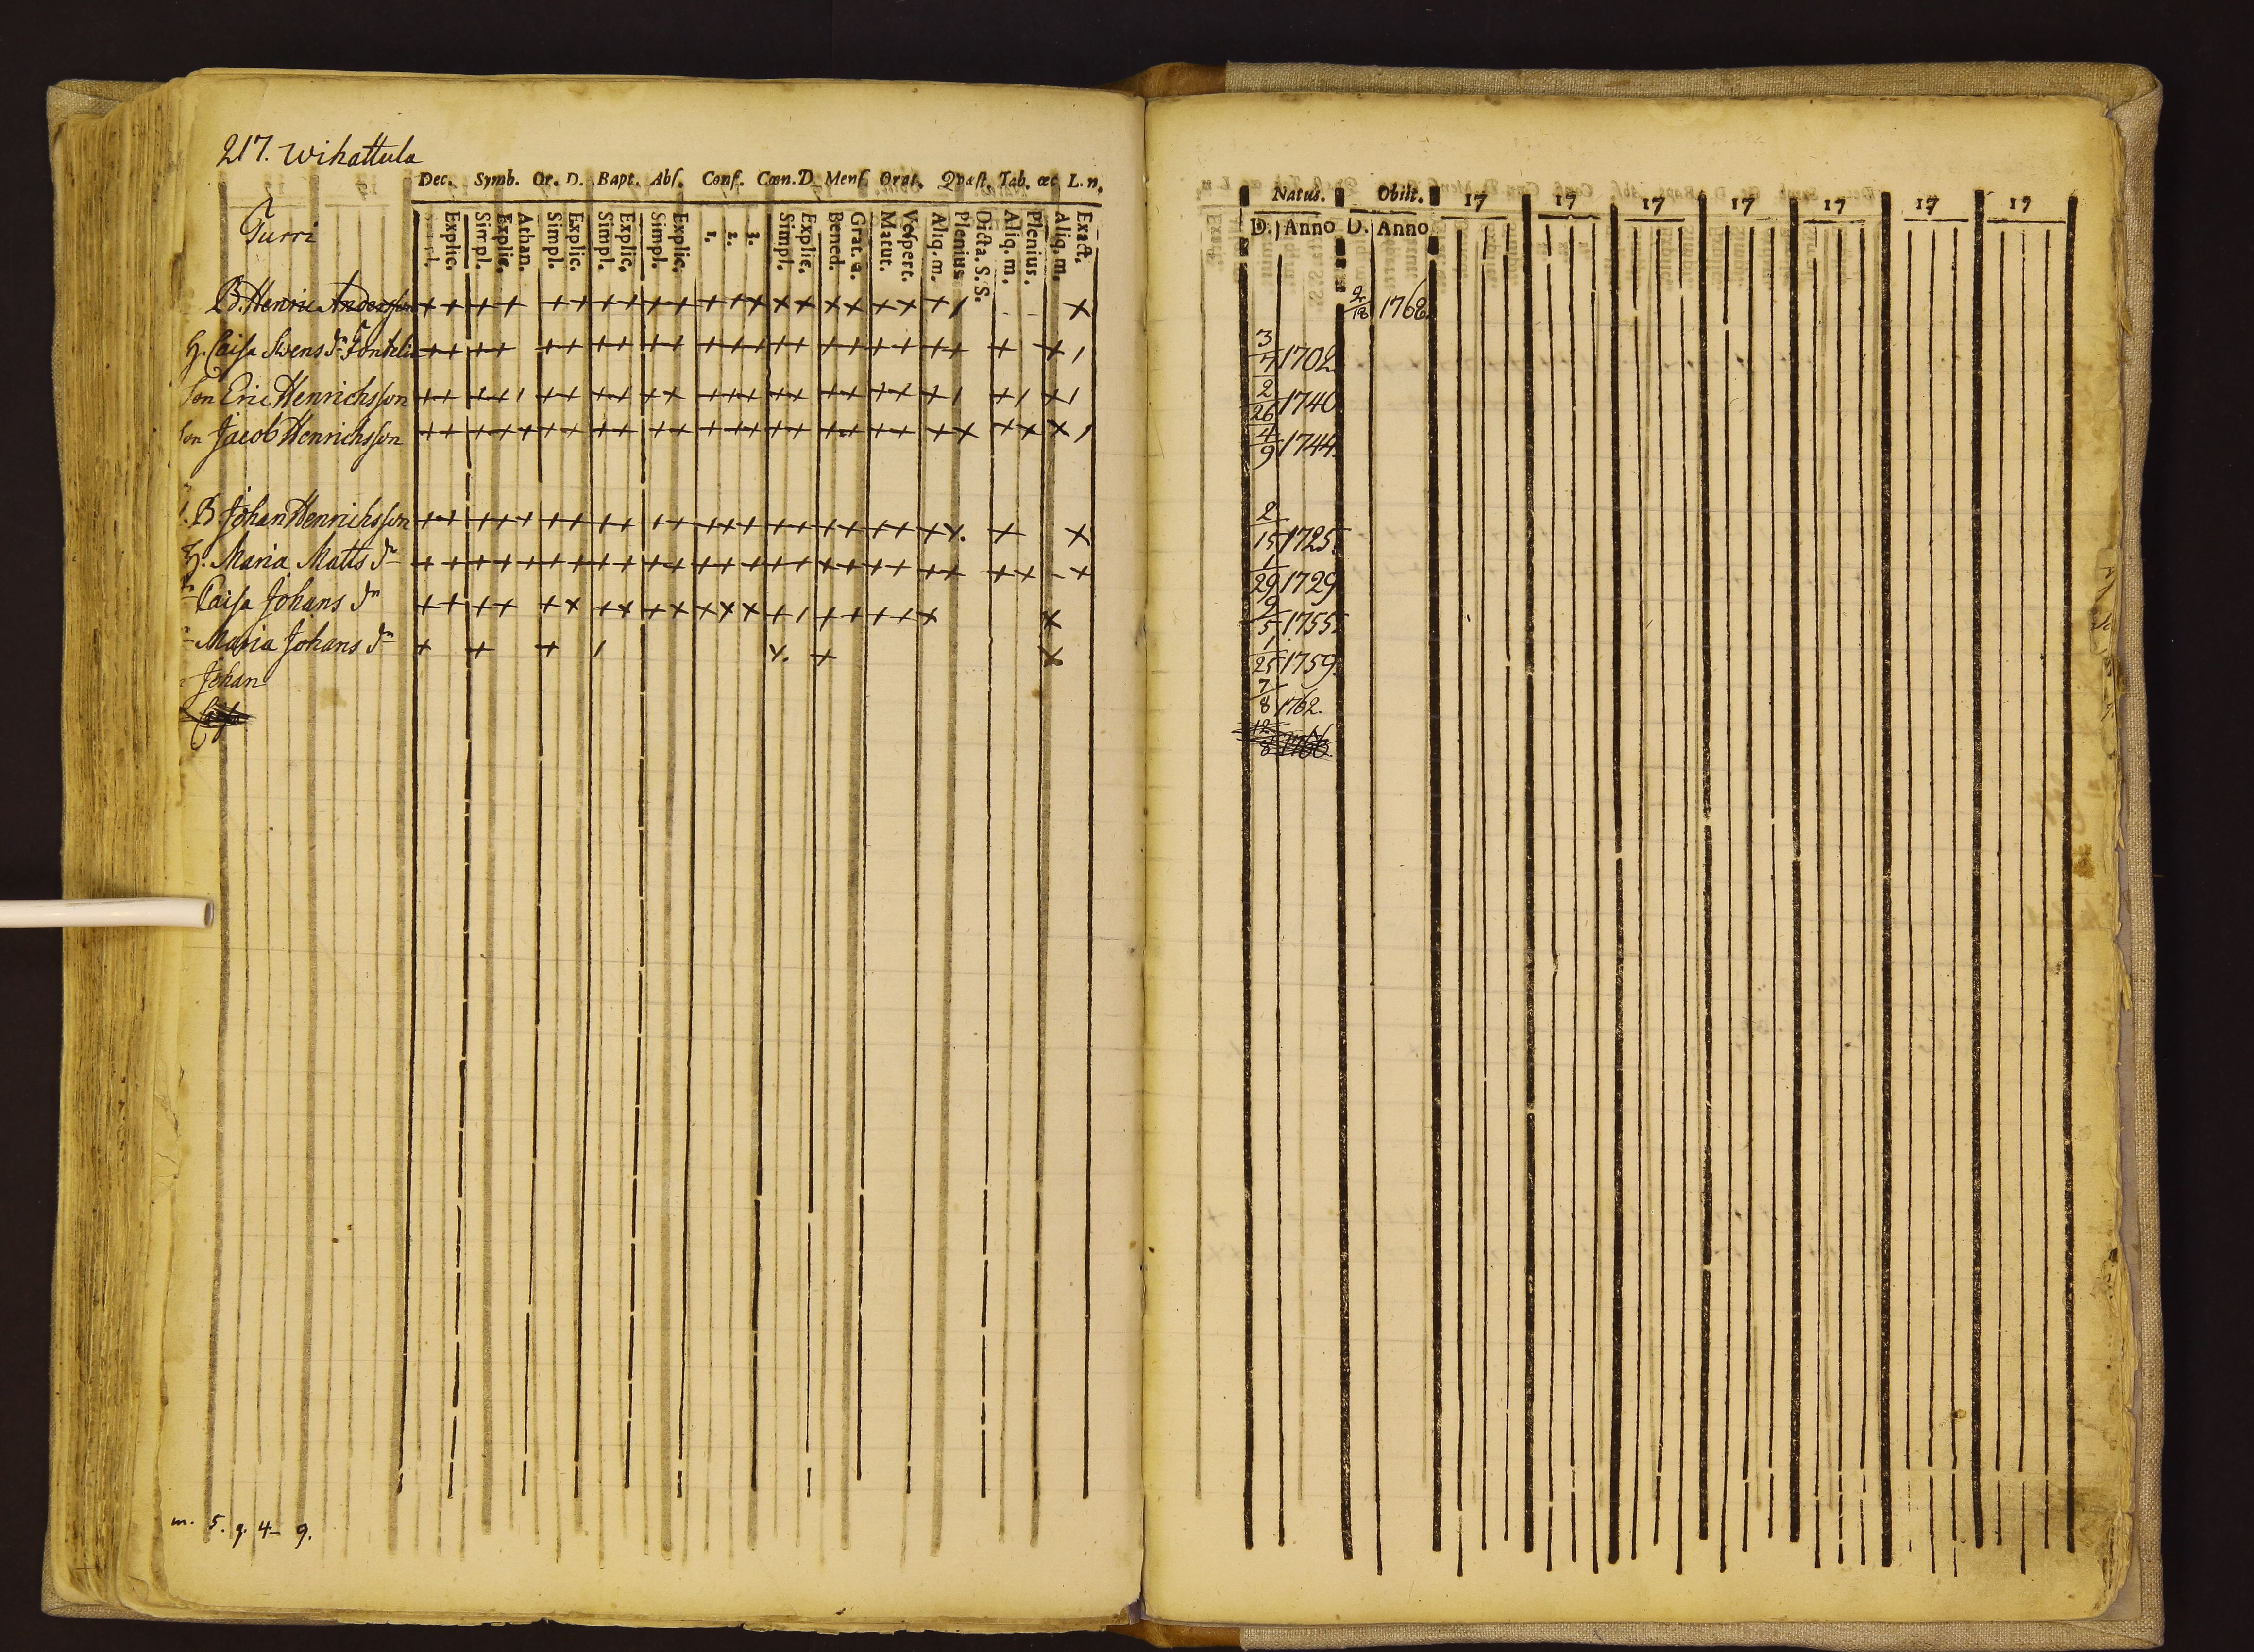 217. Wihattula
Dec. Symb. Or. D. Bapt. Abſ. Conf. Cœn. D. Menſ. Orat. Qvæſt. Tab. œc L. n.
Explic. Simpl. Explic. Athan. Simpl. Explic. Simpl. Explic. Simpl. Explic. 1. 2. 3. Simpl. Explic. Bened. Grat. a. Matut. Veſpert. Aliq. m. Plenius Dicta. S. S. Aliq. m. Plenius. Aliq. m. Exact.
Turri
B. Henric Andersson
H. Caisa Swens dr
Son Eric Henrichsson
Son Jacob Henrichsson
B. Johan Henrichsson
H. Maria Matts dr
Caisa Johans dr
Maria Johans dr
Johan
m. 5. q. 4 9.
Natus. Obiit. 17 17 17 17 17 17 17
D. Anno D. Anno
2/18 1768
3/7 1702
2/26 1740
4/9 1744
2/15 1725
1/29 1729
9/5 1755
1/25 1759
7/8 1762.
12/8 1766